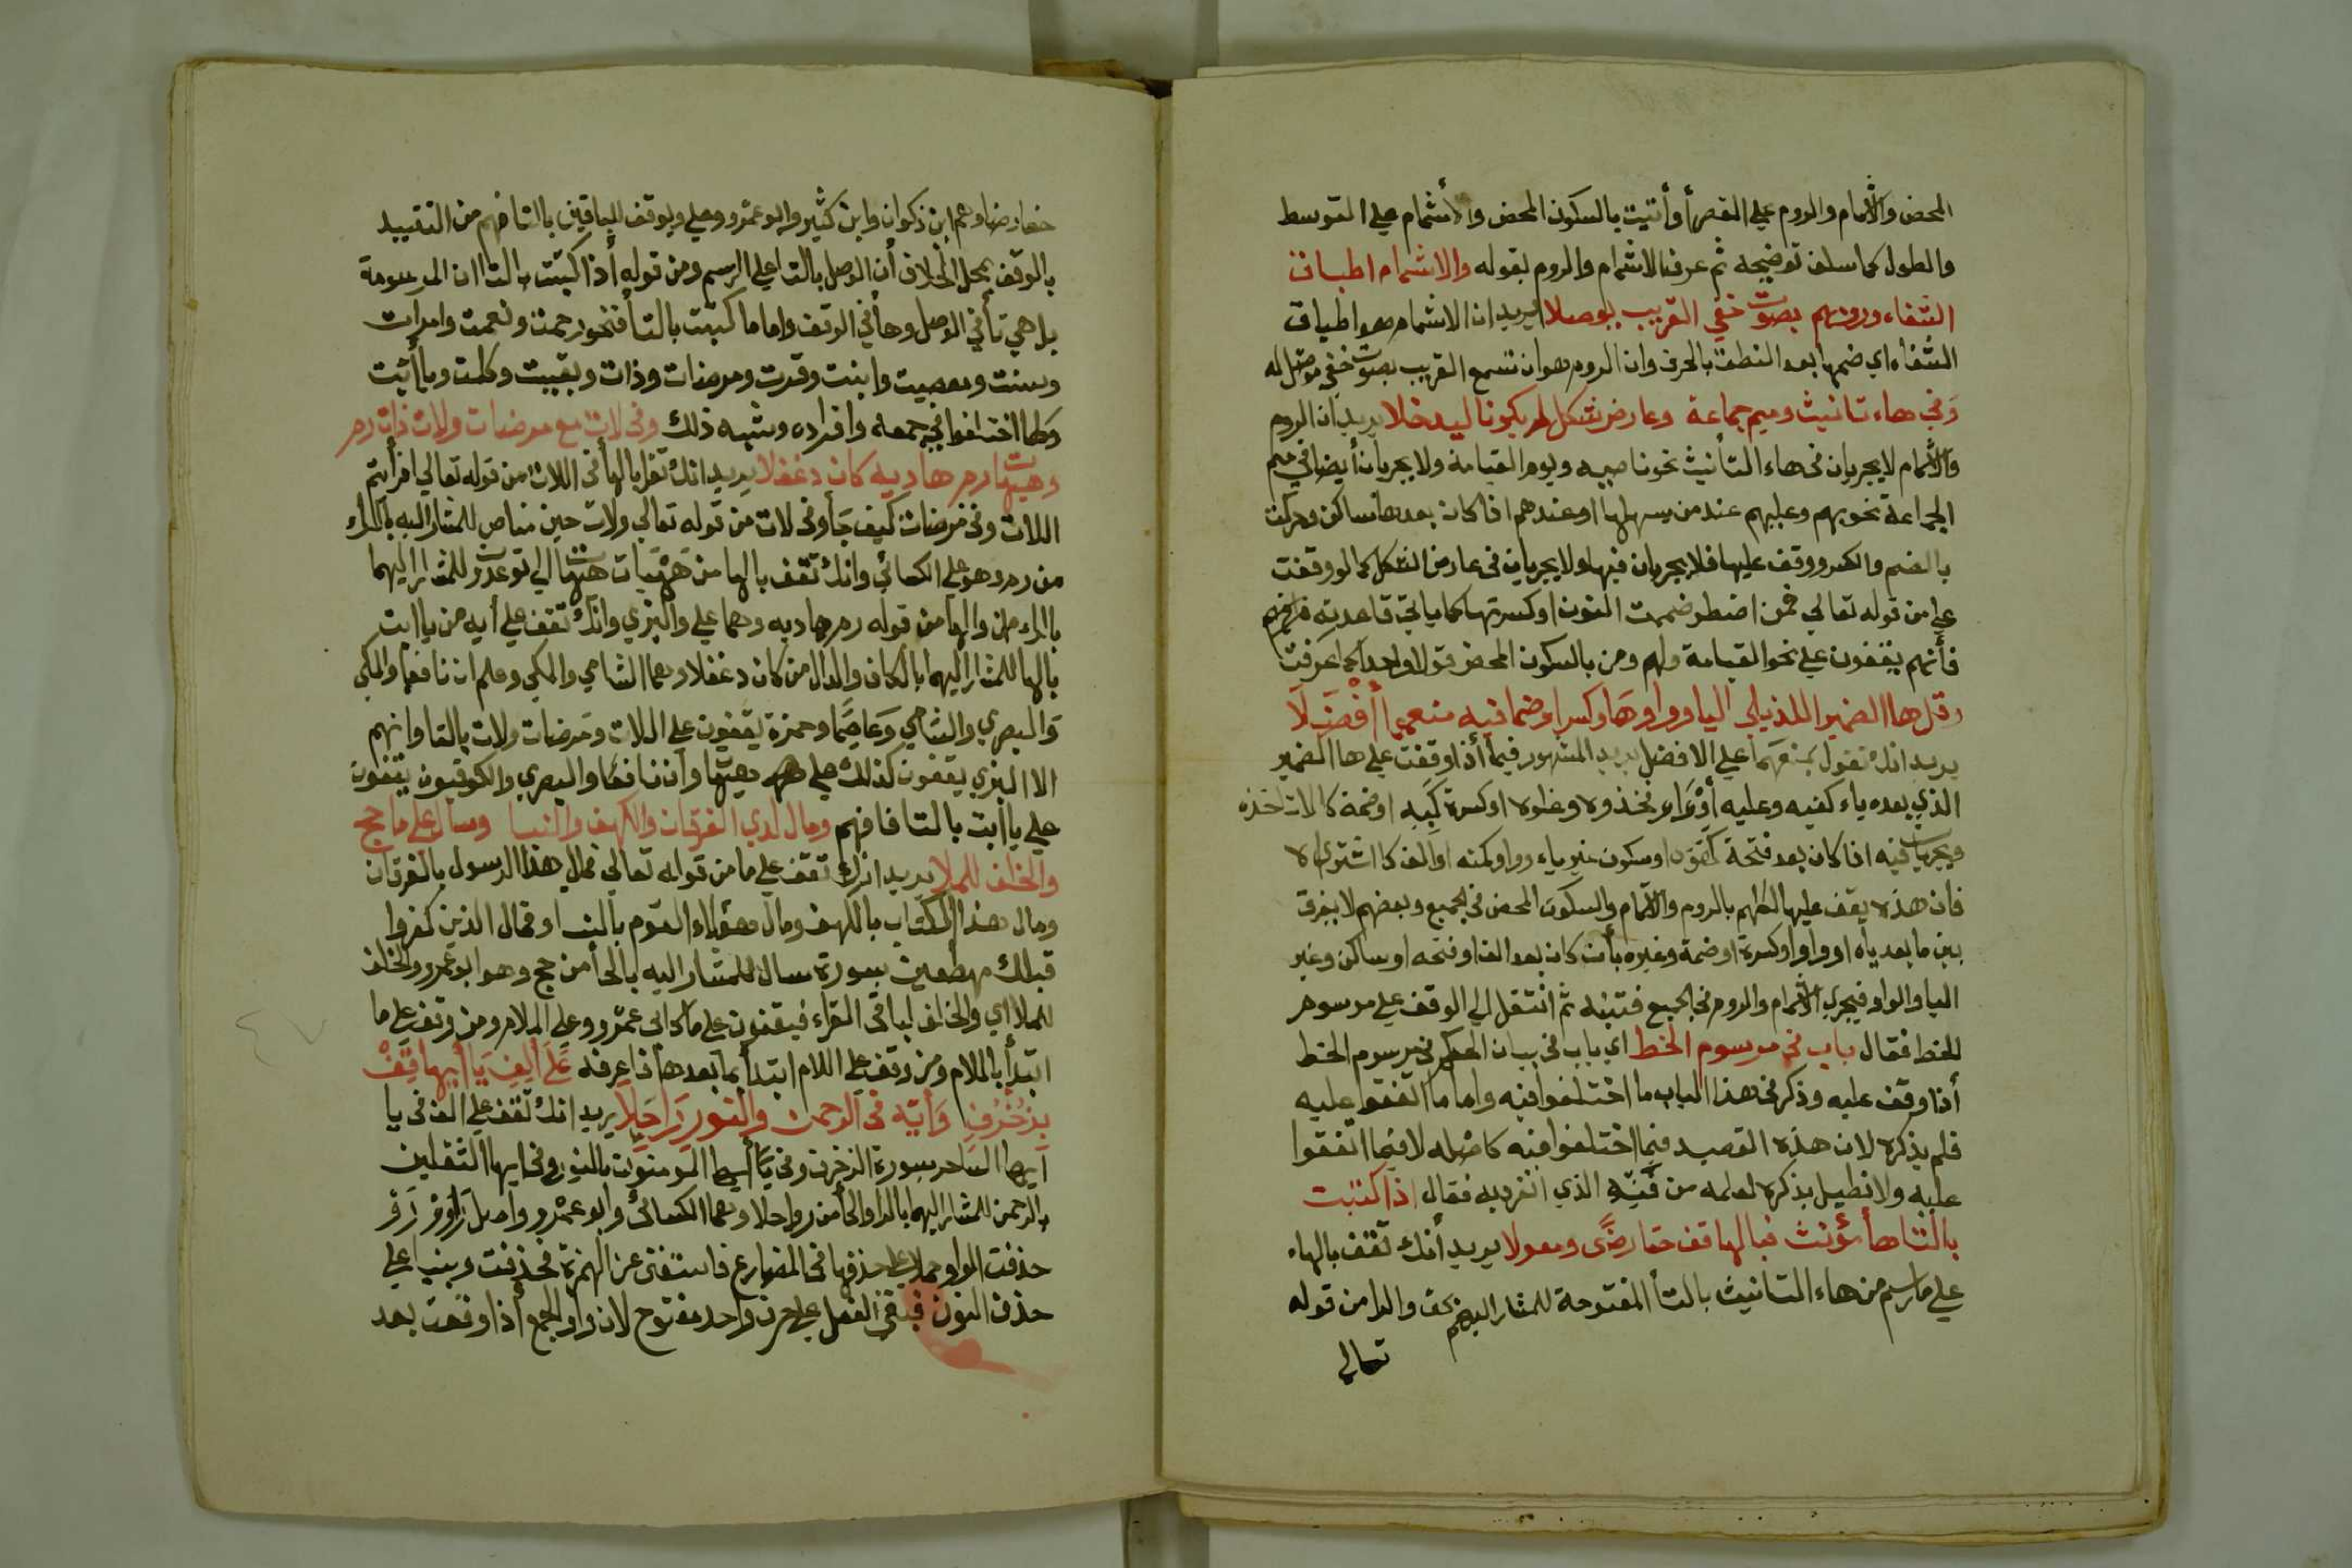 المحض والاشمام والروم على القصر أو أتيت بالسكون المحض والأشمام على التوسط
والطول كما سلف توضيحه ثم عرف الاشمام والروم بقوله والاشمام اطباق
الشفاء ورومهم بصوت خفي القريب يوصلا يريد ان الاشمام هو اطباق
الشفاه اي ضمها بعد النطق بالحرف وان الروم هو ان تسمع القريب بصوت خفي
وفي هاء تانيث وميم جماعة وعارض شكل لم يكونا ليدخلا يريد ان الروم
والاشمام لا يجريان في هاء التأنيث نحو ناصبه ويوم القيامة ولا يجريان أيضا في ميم
الجماعة نحو بهم وعليهم عند من يسهلها او عندهم اذا كان بعدها ساكن وحركت
بالضم والكسر ووقف عليها فلا يجريان فيها ولا يجريان في عارض الشكل كما لو وقفت
على من قوله تعالى فمن اضطر ضممت النون او كسرتها كما ياتي قاعدته
فأنهم يقفون على نحو القيامة ولهم ومن بالسكون المحض قولا واحدا كما عرفت
وقل ها الضمير اللذيلي اليا وواوها وكسرا وضما فيه منعهما أفضلا
يريد انك تقول بمنعهما على الافضل يريد المشهور فيما أذا وقفت على ها الضمير
الذي بعده ياء كفيه وعليه أو واو نخذوه وغلوه او كسرة كبه او ضمة كالات اخذه
ويجريان فيه اذا كان بعد فتحة او سكون غير ياء وواو كمنه او الف كاشتراه لا
فان هذه يقف عليها كلهم بالروم والاشمام والسكون المحض في الجميع وبعضهم لا يفرق
بين ما بعد ياه او واو او كسرة او ضمة وغيره بأن كان بعد الف او فتحه او ساكن وغير
اليا والواو فيجري الاشمام والروم في الجميع فتنبه ثم انتقل الى الوقف على مرسوم
الخط فقال باب في مرسوم الخط اي باب في بيان الحكم في مرسوم الخط
أذا وقف عليه وذكر في هذا الباب ما اختلفوا فيه واما ما اتفقوا عليه
فلم يذكره لان هذه القصيد فيما اختلفوا فيه كاصله لا فيما اتفقوا
عليه ولا نطيل بذكره لعلمه من الذي انفرد به فقال اذا كتبت
بالتا هأ مؤنث فبالها قف حقا رضى ومعولا يريد أنك تقف بالهاء
على ما رسم من هاء التانيث بالتأ المفتوحة للمشار اليهم بحق والرا من قوله
تعالى
حقا رضا وهم ابن ذكوان وابن كثير وابو عمرو وعلي ويوقف للباقين بالتا فهم من التقييد
بالوقف بمحل الخلاف أن الوصل بالتا على الرسم ومن قوله أذا كتبت بالتا ان المرسومة
بل هي تأ في الوصل وها في الوقف واما ما كتبت بالتأ فنحو رحمت ونعمت وامرات
وسنت ومعصيت وابنت وقرت ومرضات وذات وبقيت وكلمت ويا أبت
وكلما اختلفوا في جمعه وافراده وشبه ذلك وفي لات مع مرضات ولات ذات رم
وهيها رم هاديه كان دغفلا يريد انك تقف بالها في اللات من قوله تعالى افرأيتم
اللات وفي مرضات كيف جأ وفي لات من قوله تعالى ولات حين مناص للمشار اليه بالراء
من رم وهو علي الكسائي وانك تقف بالها من هيهات هيهات الى توعدون للمشار اليهما
بالراء والها من قوله رم هاديه وهما علي والبزي وانك تقف على أيه من يا ابت
بالها للمشار اليهما بالكاف والدال من كان دغفلا وهما الشامي والمكي وعلم ان نافعا والمكي
والبصري والشامي وعاصما وحمزة يقفون على اللات ومرضات ولات بالتا وانهم
الا البزي يقفون كذلك على هيهات وأن نافعا والبصري والكوفيون يقفون
على يا ابت بالتا فافهم ومال لدي الفرقان والكهف والنسا وسال على ما حج
والخلف للملا يريد انك تقف على ما من قوله تعالى فمال هذا الرسول بالفرقان
ومال هذا الكتاب بالكهف ومال هؤلاء القوم بالنسا وفمال الذين كفروا
قبلك مهطعين بسورة سال للمشار اليه بالحأ من حج وهو ابو عمرو والخلف
للملا اي والخلف لباقي القراء فيقفون على ما كابي عمرو وعلى اللام ومن وقف على ما
ابتدأ باللام ومن وقف على اللام ابتدأ بما بعدها فاعرفه على ألف يا أيها قف
بزخرف وأيه في الرحمن والنور راحلا يريد انك تقف على الف في يا
أيها الساحر بسورة الزخرف وفي يا أيها المؤمنون بالنور وفي ايها الثقلين
بالرحمن للمشار اليهما بالرا والحأ من راحلا وهما الكسائي وابو عمرو
حذفت الواو حملا على حذفها في المضارع فاستغنى عن الهمزة فحذفت وبنيا على
حذف النون فبقي الفعل على حرف واحد مفتوح لان واو الجمع أذا وقعت بعد